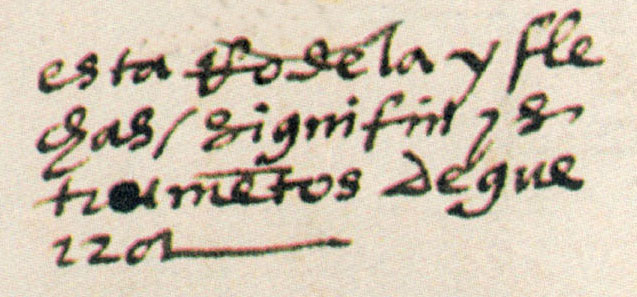 esta Rodela y fle
chas / significā ys
trumētos de gue
rra